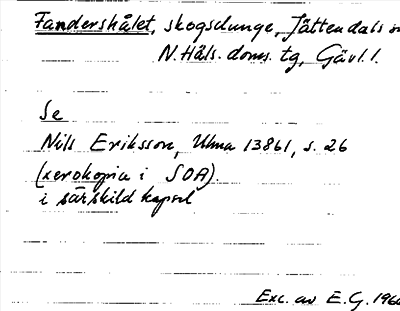 Fandershålet, skogsdunge, Jättendals
N. Häls. doms. tg, Gävl. l.
Se
Nils Eriksson, Ulma 13861, s. 26
(xerokopia i SOA).
i särskild kapsel
Exc. av E.G. 196